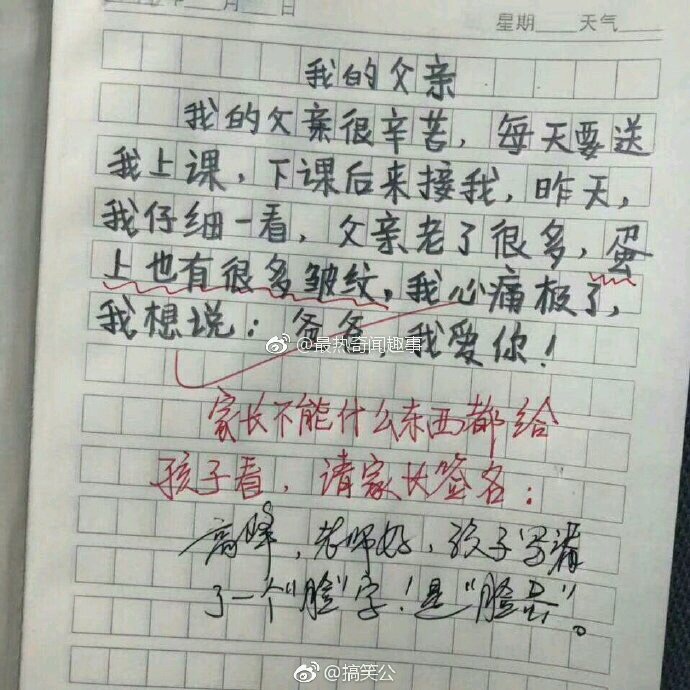 年 月 日
星期 天气
我的父亲
我的父亲很辛苦，每天要送
我上课，下课后来接我，昨天，
我仔细一看，父亲老了很多，蛋
上也有很多皱纹，我心痛极了，
我想说：爸爸，我爱你！
@最热奇闻趣事
家长不能什么东西都给
孩子看，请家长签名：
高峰，老师好，孩子写错
了一个“脸”字！是“脸蛋”。
@搞笑公